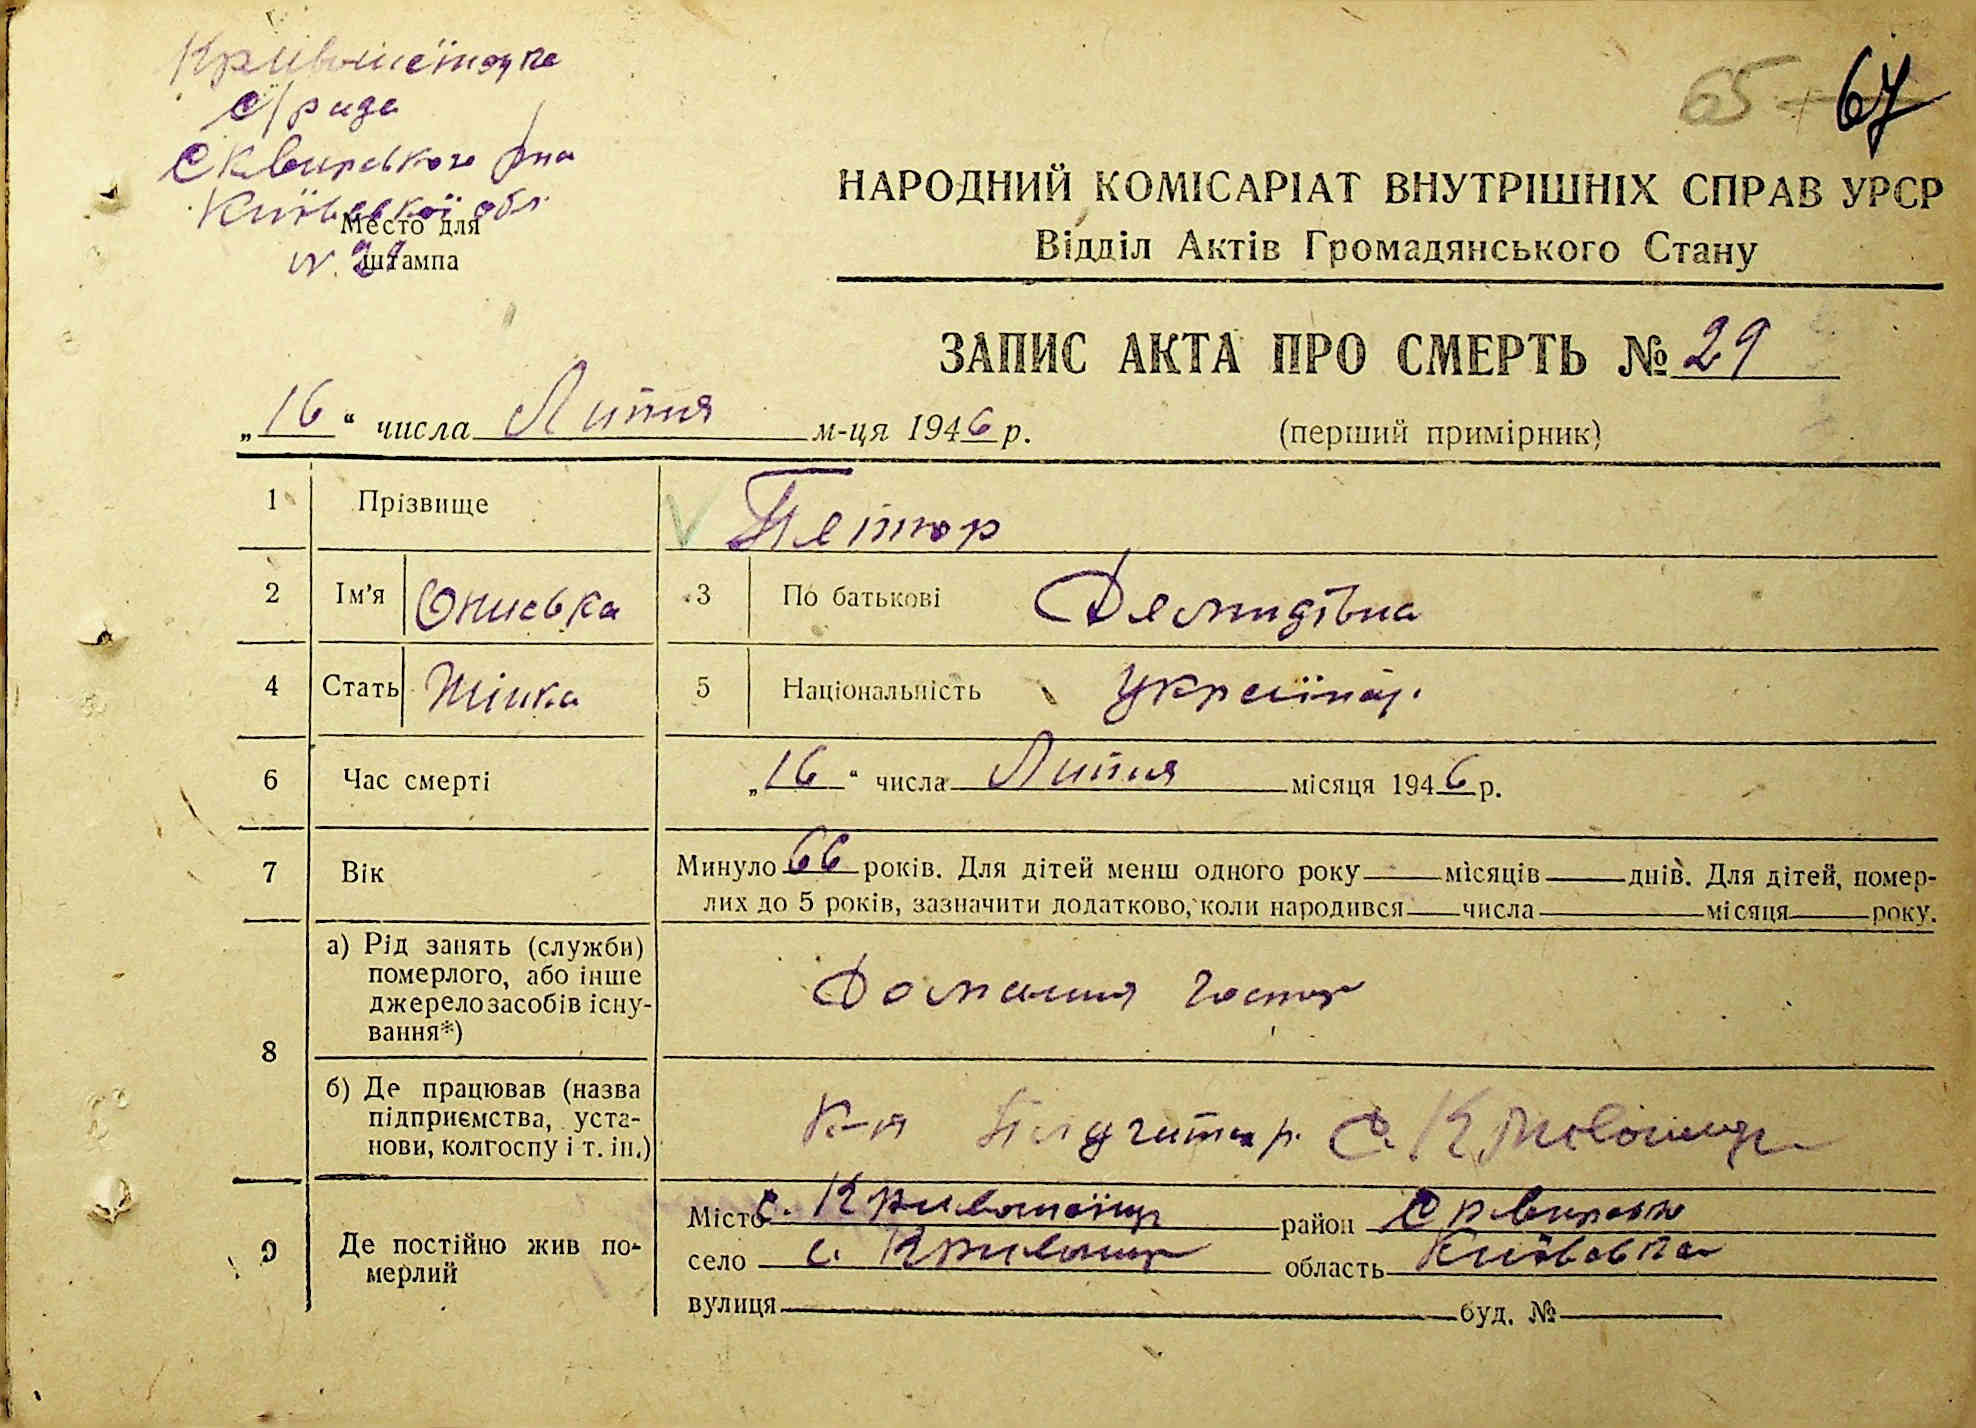 с/рада
Сквирського р-на
Київської обл
Место для
штампа
65 67
НАРОДНИЙ КОМІСАРІАТ ВНУТРІШНІХ СПРАВ УРСР
Відділ Актів Громадянського Стану
ЗАПИС АКТА ПРО СМЕРТЬ № 29
„16“ числа Липня м-ця 1946 р.
(перший примірник)
1 Прізвище
2 Ім'я Ониська 3 По батькові Демидівна
4 Стать Жінка 5 Національність Україн.
6 Час смерті „16“ числа Липня місяця 1946 р.
7 Вік Минуло 66 років. Для дітей менш одного року місяців днів. Для дітей, помер-
лих до 5 років, зазначити додатково, коли народився числа місяця року.
8 а) Рід занять (служби)
померлого, або інше
джерело засобів існу-
вання*)
Домашня госпор
б) Де працював (назва
підприємства, уста-
нови, колгоспу і т. ін.)
К-п с.
9 Де постійно жив по-
мерлий
Місто с. район
село с. область Київська
вулиця буд. №